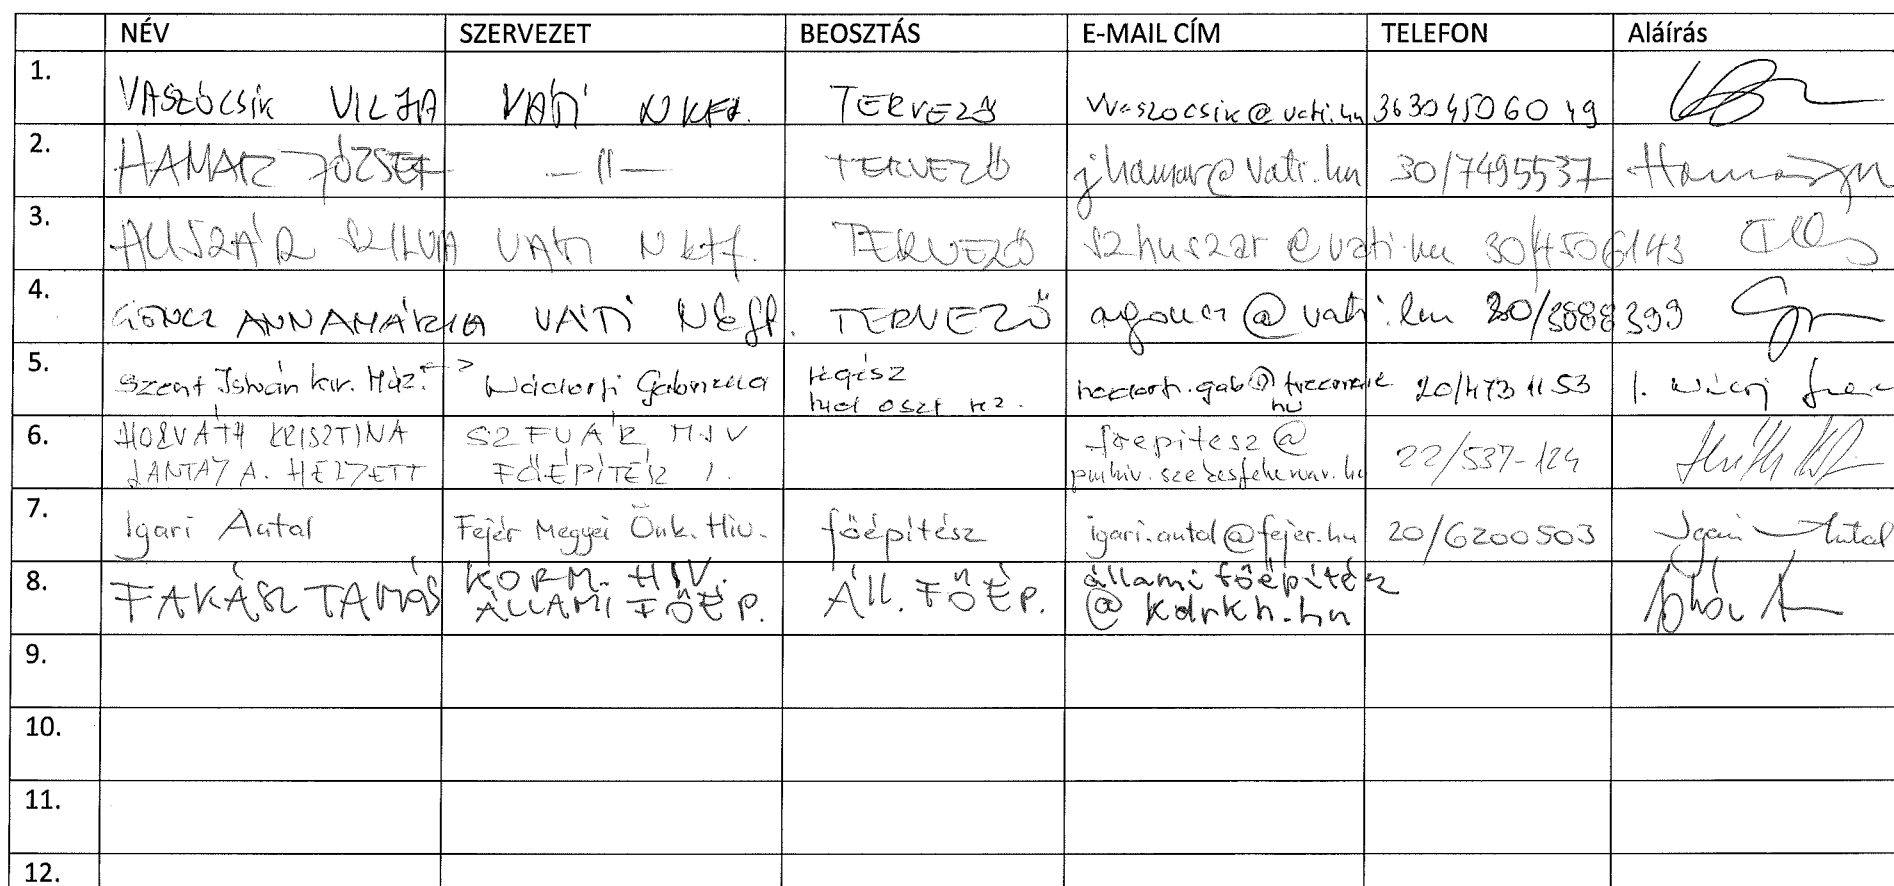 NÉV SZERVEZET BEOSZTÁS E-MAIL CÍM TELEFON Aláírás
1. VASZÓCSIK VILJA VÁTI NKFT. TERVEZŐ vvaszocsik@vati.hu 36304506049
2. HAMAR JÓZSEF —||— TERVEZŐ jhamar@vati.hu 30/7495537
3. HUSZÁR SZILVIA VÁTI Nkft. TERVEZŐ szhuszar@vati.hu 30/4506143
4. GÖNCZ ANNAMÁRIA VÁTI Nkft. TERVEZŐ agoncz@vati.hu 30/3088399
5. Szent István kir. Múz. Nádorfi Gabriella régész 20/473 11 53
6. HORVÁTH KRISZTINA SZFVÁR MJV főepitesz@ 22/537-124
LANTAY A. HELYETT FŐÉPÍTÉSZ I.
7. Igari Antal Fejér Megyei Önk. Hiv. főépítész igari.antal@fejer.hu 20/6200503 Igari Antal
8. FAKÁSZ TAMÁS KORM. HIV. ÁLL. FŐÉP. állami főépítész
ÁLLAMI FŐÉP. @kdrkh.hu
9.
10.
11.
12.